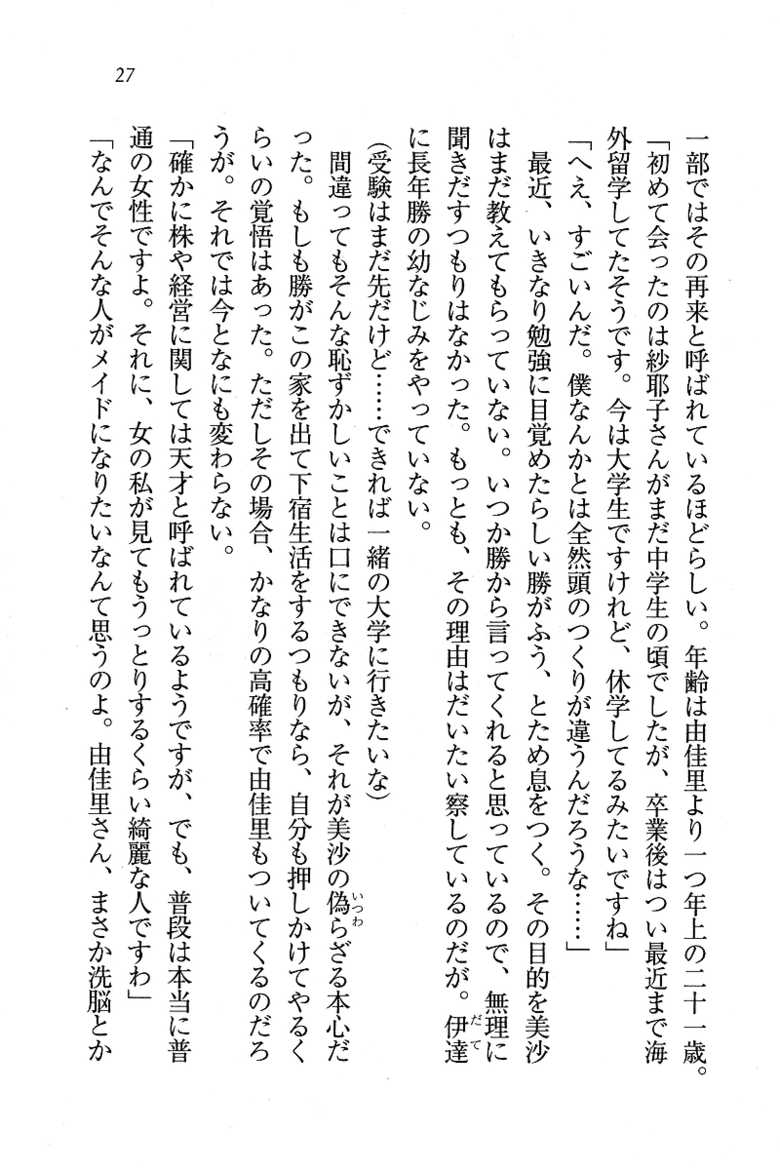 27
一部ではその再来と呼ばれているほどらしい。年齢は由佳里より一つ年上の二十一歳。
「初めて会ったのは紗耶子さんがまだ中学生の頃でしたが、卒業後はつい最近まで海
外留学してたそうです。今は大学生ですけれど、休学してるみたいですね」
「へえ、すごいんだ。僕なんかとは全然頭のつくりが違うんだろうな……」
最近、いきなり勉強に目覚めたらしい勝がふう、とため息をつく。その目的を美沙
はまだ教えてもらっていない。いつか勝から言ってくれると思っているので、無理に
聞きだすつもりはなかった。もっとも、その理由はだいたい察しているのだが。伊達
に長年勝の幼なじみをやっていない。
（受験はまだ先だけど……できれば一緒の大学に行きたいな）
間違ってもそんな恥ずかしいことは口にできないが、それが美沙の偽らざる本心だ
った。もしも勝がこの家を出て下宿生活をするつもりなら、自分も押しかけてやるく
らいの覚悟はあった。ただしその場合、かなりの高確率で由佳里もついてくるのだろ
うが。それでは今となにも変わらない。
「確かに株や経営に関しては天才と呼ばれているようですが、でも、普段は本当に普
通の女性ですよ。それに、女の私が見てもうっとりするくらい綺麗な人ですわ」
「なんでそんな人がメイドになりたいなんて思うのよ。由佳里さん、まさか洗脳とか